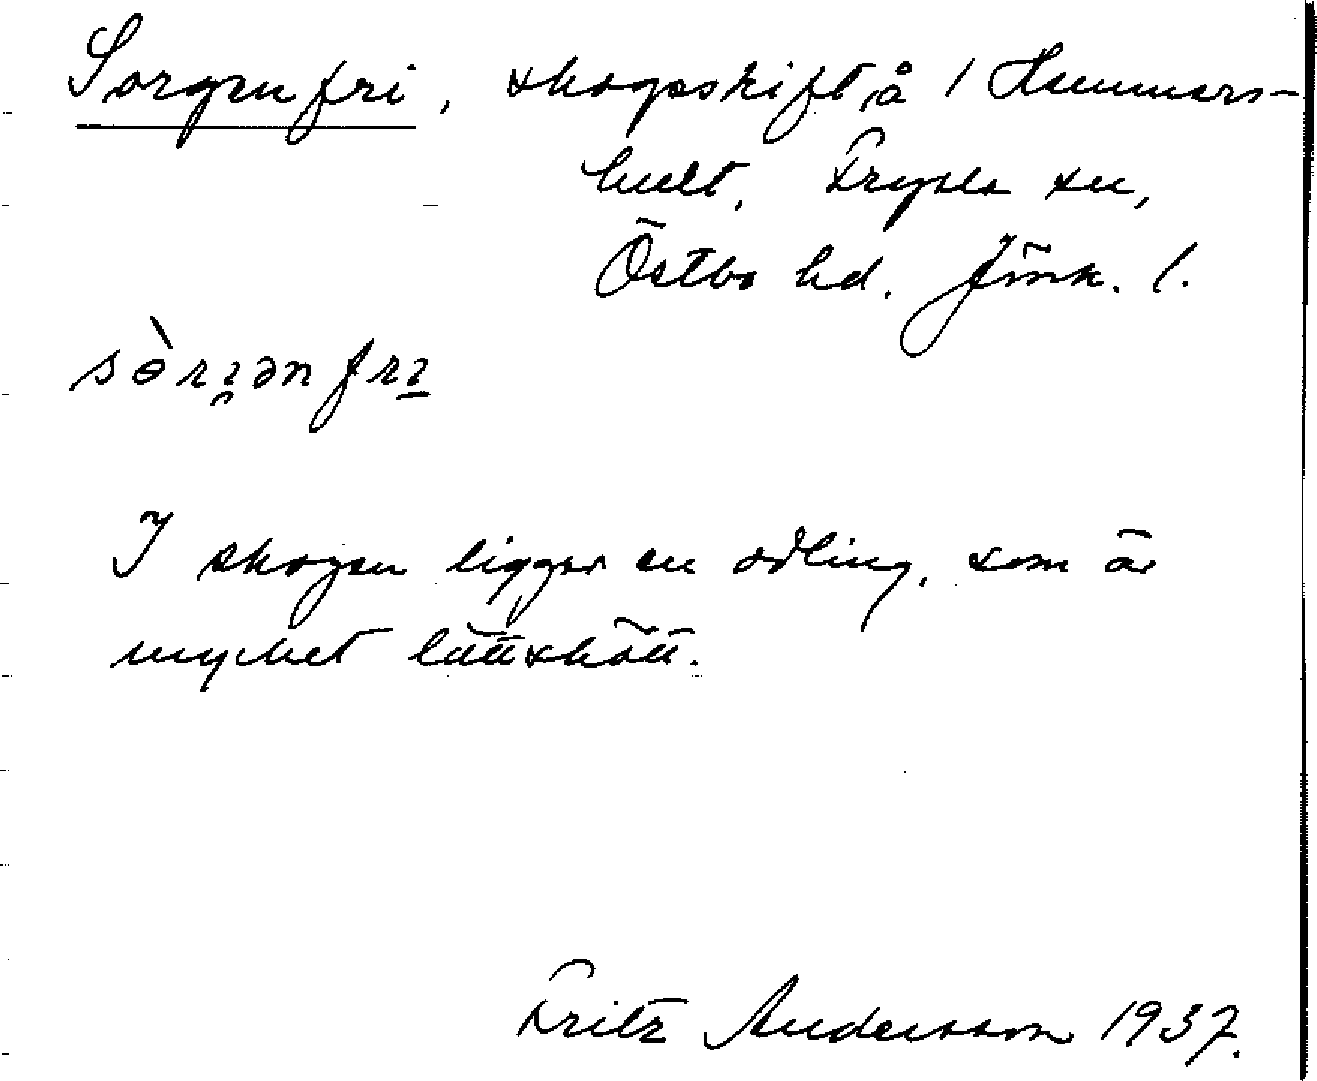 Sorgenfri, skogsskift å 1 Hammars-
hult, Fryele sn,
Östbo hd. Jönk. l.
sòrɿ̯ənfrɿ̲
I skogen ligger en odling, som är
mycket lättskött.
Fritz Andersson 1937.